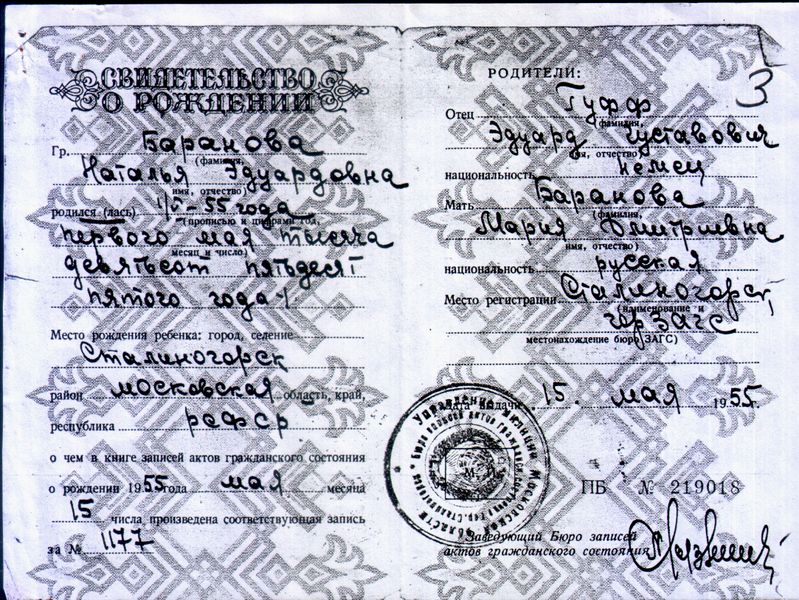 СВИДЕТЕЛЬСТВО
О РОЖДЕНИИ
Гр. Баранова
(фамилия,
Наталья Эдуардовна
имя, отчество)
родился (лась) 1/V-55 года
(прописью и цифрами год,
первого мая тысяча
месяц и число)
девятьсот пятьдесят
пятого года
Место рождения ребенка: город, селение
Сталиногорск
район Московская область, край,
республика РСФСР
о чем в книге записей актов гражданского состояния
о рождении 1955 года мая месяца
15 числа произведена соответствующая запись
за № 1177
3
РОДИТЕЛИ:
Отец Гуфф
(фамилия,
Эдуард Густавович
имя, отчество)
национальность немец
Мать Баранова
(фамилия,
Мария Дмитриевна
имя, отчество)
национальность русская
Место регистрации Сталиногорск,
(наименование и
горЗАГС
местонахождение бюро ЗАГС)
Дата выдачи 15. мая 1955 г.
Управление милиции Московской области
ПБ № 219018
Заведующий Бюро записей
актов гражданского состояния